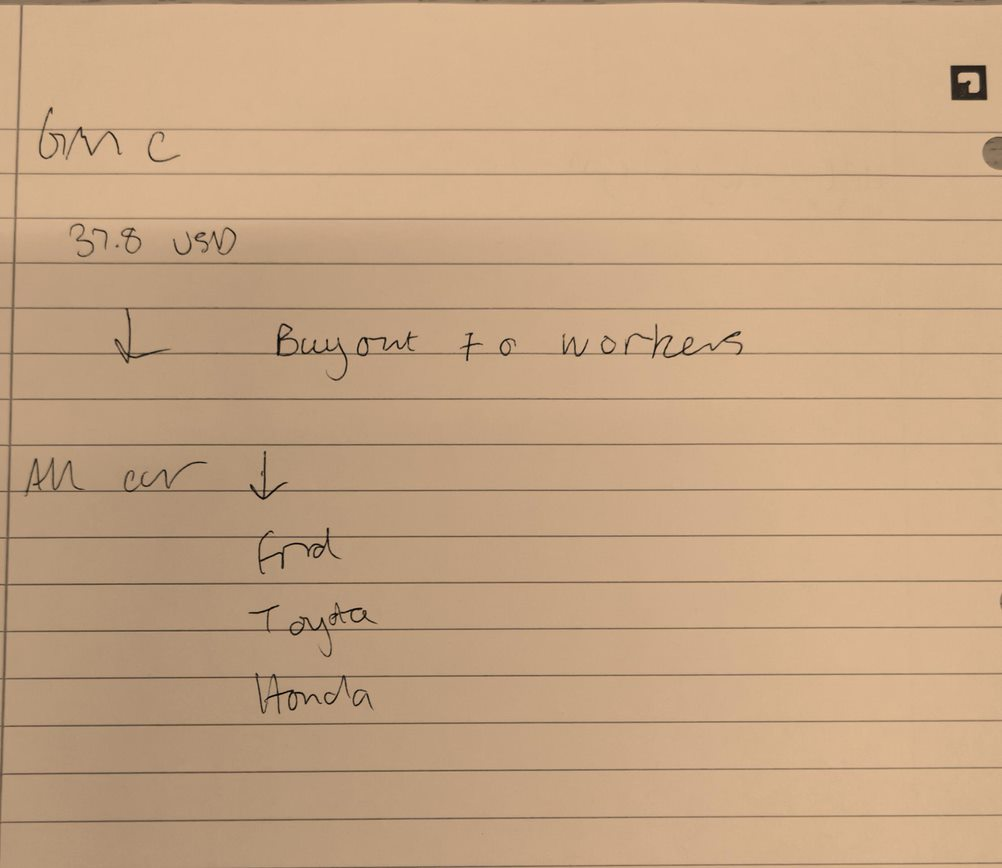 GMC
37.8 USD
↓ Buyout to workers
All car ↓
Ford
Toyota
Honda